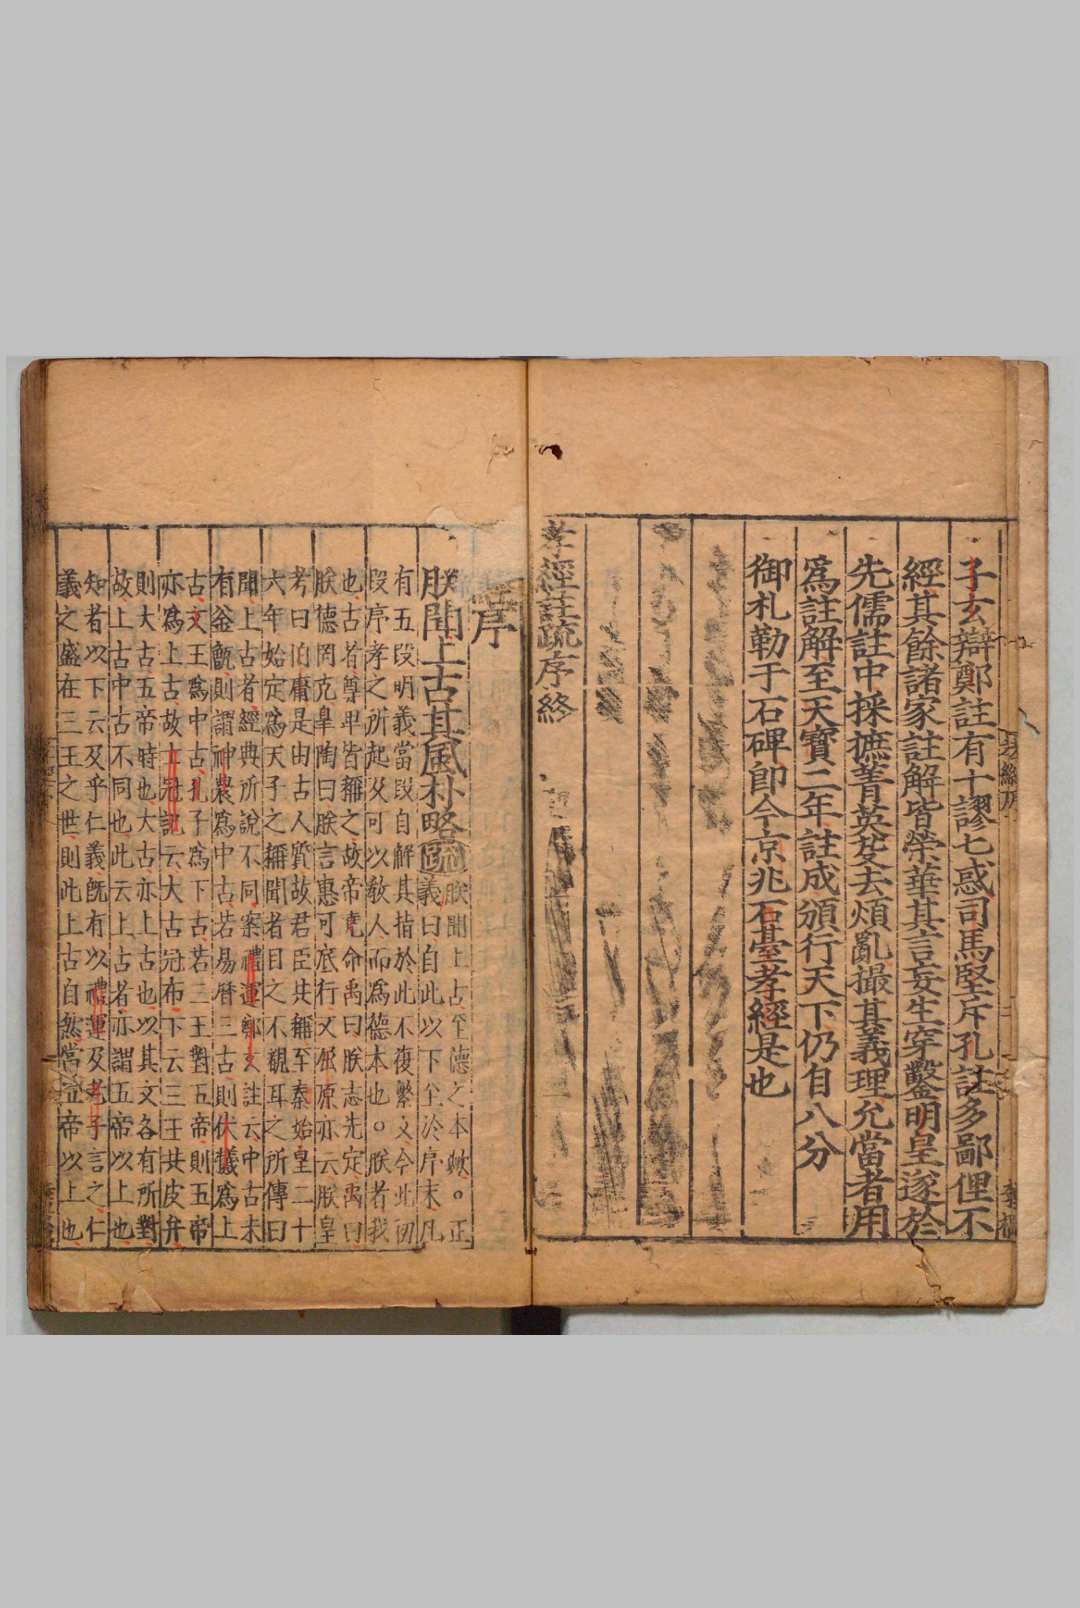 子玄辯鄭註有十謬七惑司馬堅斥孔註多鄙俚不
經其餘諸家註解皆榮華其言妄生穿鑿明皇遂於
先儒註中採摭菁英芟去煩亂撮其義理允當者用
爲註解至天寶二年註成頒行天下仍自八分
御札勒于石碑卽今京兆石臺孝經是也
孝經註疏序終
經序
朕聞上古其風朴略疏義曰自此以下至於序末凡
朕聞上古至德之本歟。正
有五段明義當段自解其指於此不復繁文今此初
段序孝之所起及可以敎人而爲德本也。朕者我
也古者尊卑皆稱之故帝堯命禹曰朕志先定禹曰
朕德罔克皐陶曰朕言惠可底行又屈原亦云朕皇
考曰伯庸是由古人質故君臣共稱至秦始皇二十
六年始定爲天子之稱聞者目之不覩耳之所傳曰
聞上古者經典所說不同案禮運鄭玄註云中古未
有釜甑則謂神農爲中古若易曆三古則伏羲爲上
古文王爲中古孔子爲下古若三王對五帝則五帝
亦爲上古故士冠記云大古冠布下云三王共皮弁
則大古五帝時也大古亦上古也以其文各有所對
故上古中古不同也此云上古者亦謂五帝以上也
知者以下云及乎仁義旣有以禮運及老子言之仁
義之盛在三王之世則此上古自然當五帝以上也